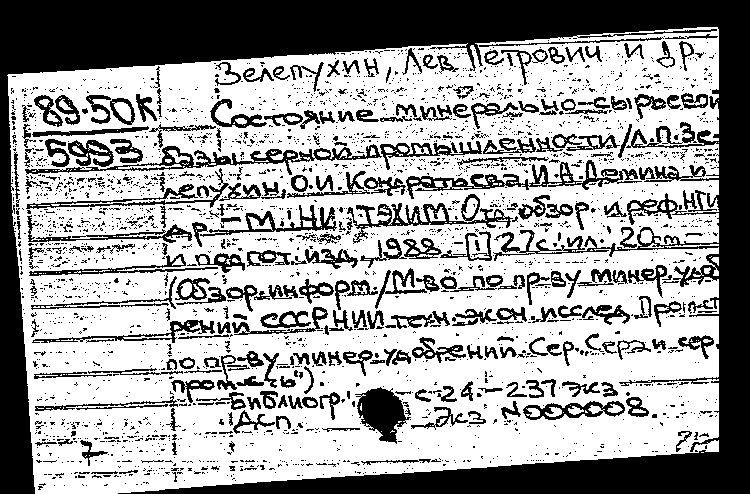 Зелепухин, Лев Петрович и др.
89-50К Состояние минерально-сырьевой
5993 базы серной промышленности/Л.П.Зе-
лепухин, О.И.Кондратьева, И.А.Демина и
др. — М.: НИИТЭХИМ. Отд. обзор. и реф. НГИ
и подгот. изд., 1988. [1], 27с.: ил.; 20см —
(Обзор. информ./М-во по пр-ву минер. удоб
рений СССР, НИИ техн.-экон. исслед. Пром-ст
по пр-ву минер. удобрений. Сер. Сера и сер.
пром-сть").
Библиогр.: с 24. — 237 экз.
ДСП. Экз. №000008.